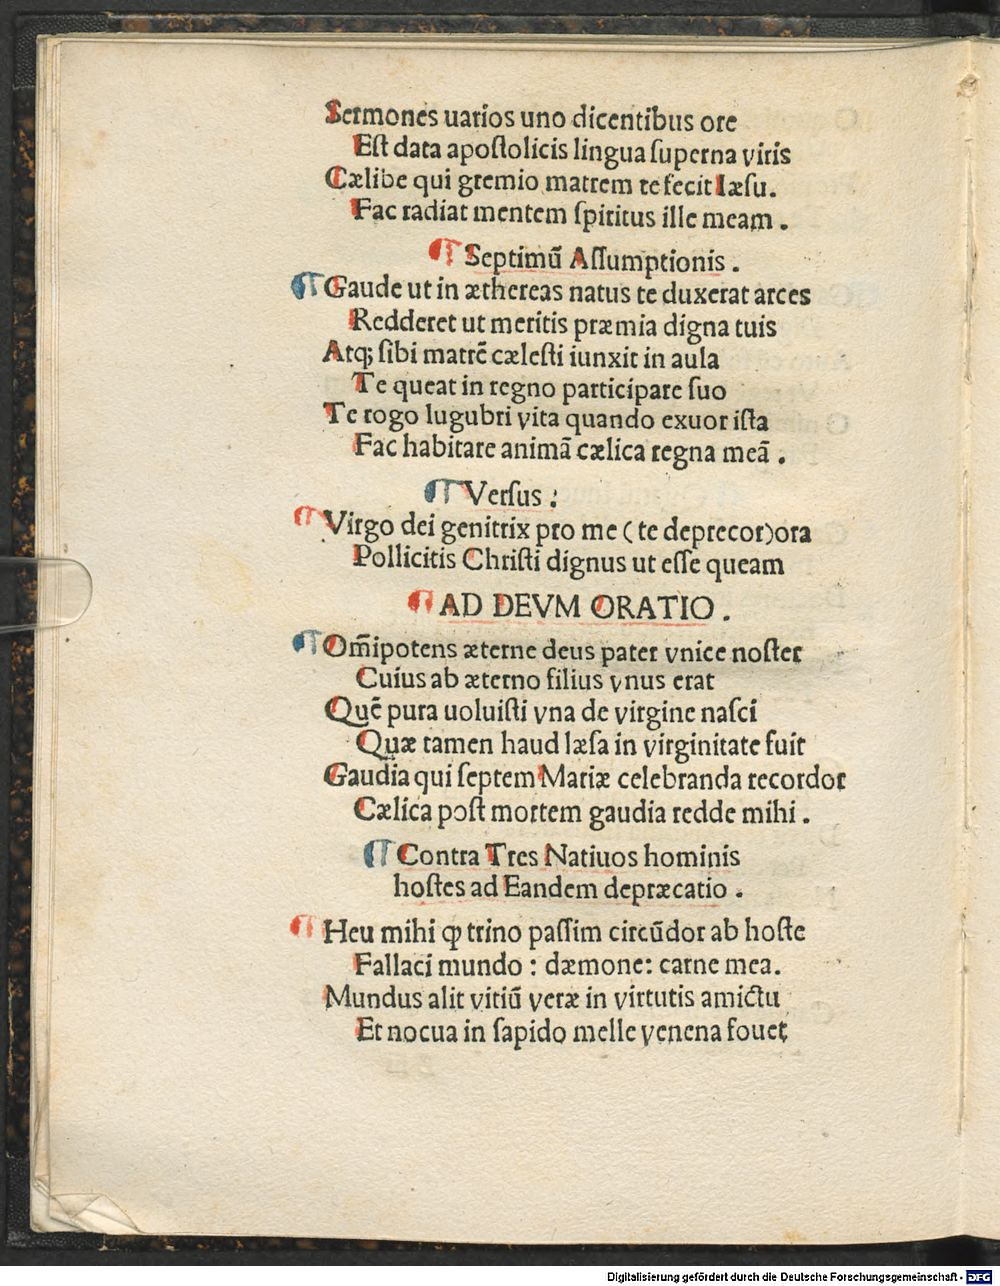 Sermones uarios uno dicentibus ore
Eſt data apoſtolicis lingua ſuperna viris
Cælibe qui gremio matrem te fecit Iæſu.
Fac radiat mentem ſpiritus ille meam .
¶ Septimũ Aſſumptionis .
¶ Gaude ut in æthereas natus te duxerat arces
Redderet ut meritis præmia digna tuis
Atq; ſibi matrẽ cæleſti iunxit in aula
Te queat in regno participare ſuo
Te rogo lugubri vita quando exuor iſta
Fac habitare animã cælica regna meã .
¶ Verſus :
¶ Virgo dei genitrix pro me ( te deprecor)ora
Pollicitis Chriſti dignus ut eſſe queam
¶ AD DEVM ORATIO .
¶ Om̃ipotens æterne deus pater vnice noſter
Cuius ab æterno filius vnus erat
Quẽ pura uoluiſti vna de virgine naſci
Quæ tamen haud læſa in virginitate fuit
Gaudia qui ſeptem Mariæ celebranda recordor
Cælica poſt mortem gaudia redde mihi .
¶ Contra Tres Natiuos hominis
hoſtes ad Eandem depræcatio .
¶ Heu mihi ꝙ trino paſſim circũdor ab hoſte
Fallaci mundo : dæmone: carne mea.
Mundus alit vitiũ veræ in virtutis amictu
Et nocua in ſapido melle venena fouet
Digitalisierung gefördert durch die Deutsche Forschungsgemeinschaft - DFG